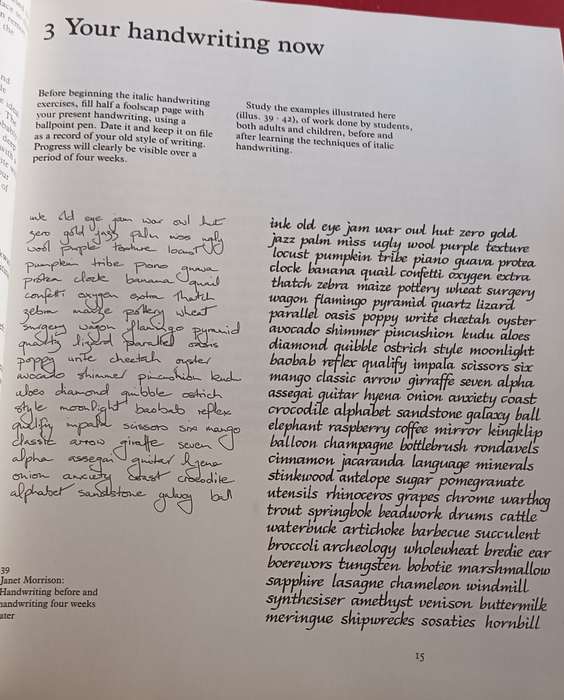 3 Your handwriting now
Before beginning the italic handwriting
exercises, fill half a foolscap page with
your present handwriting, using a
ballpoint pen. Date it and keep it on file
as a record of your old style of writing.
Progress will clearly be visible over a
period of four weeks.
Study the examples illustrated here
(illus. 39 - 42), of work done by students,
both adults and children, before and
after learning the techniques of italic
handwriting.
ink old eye jam war owl hut
zero gold jazz palm miss ugly
wool purple texture locust
pumpkin tribe piano guava
protea clock banana quail
confetti oxygen extra thatch
zebra maize pottery wheat
surgery wagon flamingo pyramid
quartz lizard parallel oasis
poppy write cheetah oyster
avocado shimmer pincushion kudu
aloes diamond quibble ostrich
style moonlight baobab reflex
qualify impala scissors six mango
classic arrow giraffe seven
alpha assegai guitar hyena
onion anxiety coast crocodile
alphabet sandstone galaxy ball
ink old eye jam war owl hut zero gold
jazz palm miss ugly wool purple texture
locust pumpkin tribe piano guava protea
clock banana quail confetti oxygen extra
thatch zebra maize pottery wheat surgery
wagon flamingo pyramid quartz lizard
parallel oasis poppy write cheetah oyster
avocado shimmer pincushion kudu aloes
diamond quibble ostrich style moonlight
baobab reflex qualify impala scissors six
mango classic arrow girraffe seven alpha
assegai guitar hyena onion anxiety coast
crocodile alphabet sandstone galaxy ball
elephant raspberry coffee mirror kingklip
balloon champagne bottlebrush rondavels
cinnamon jacaranda language minerals
stinkwood antelope sugar pomegranate
utensils rhinoceros grapes chrome warthog
trout springbok beadwork drums cattle
waterbuck artichoke barbecue succulent
broccoli archeology wholewheat bredie ear
boerewors tungsten bobotie marshmallow
sapphire lasagne chameleon windmill
synthesiser amethyst venison buttermilk
meringue shipwrecks sosaties hornbill
39
Janet Morrison:
Handwriting before and
handwriting four weeks
later
15